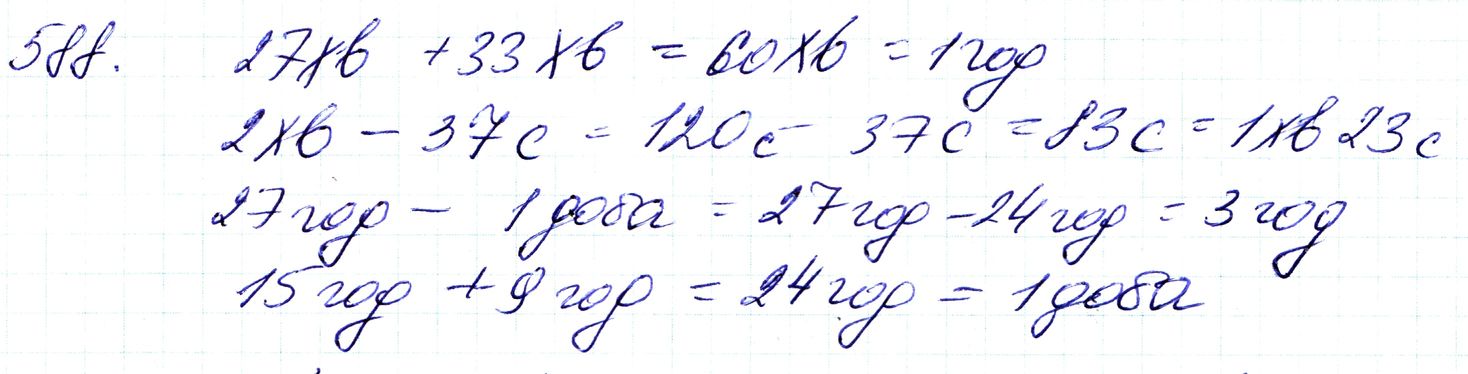 588. 27хв + 33хв = 60хв = 1год
2хв - 37с = 120с - 37с = 83с = 1хв 23с
27год - 1доба = 27год - 24год = 3год
15год + 9год = 24год = 1доба